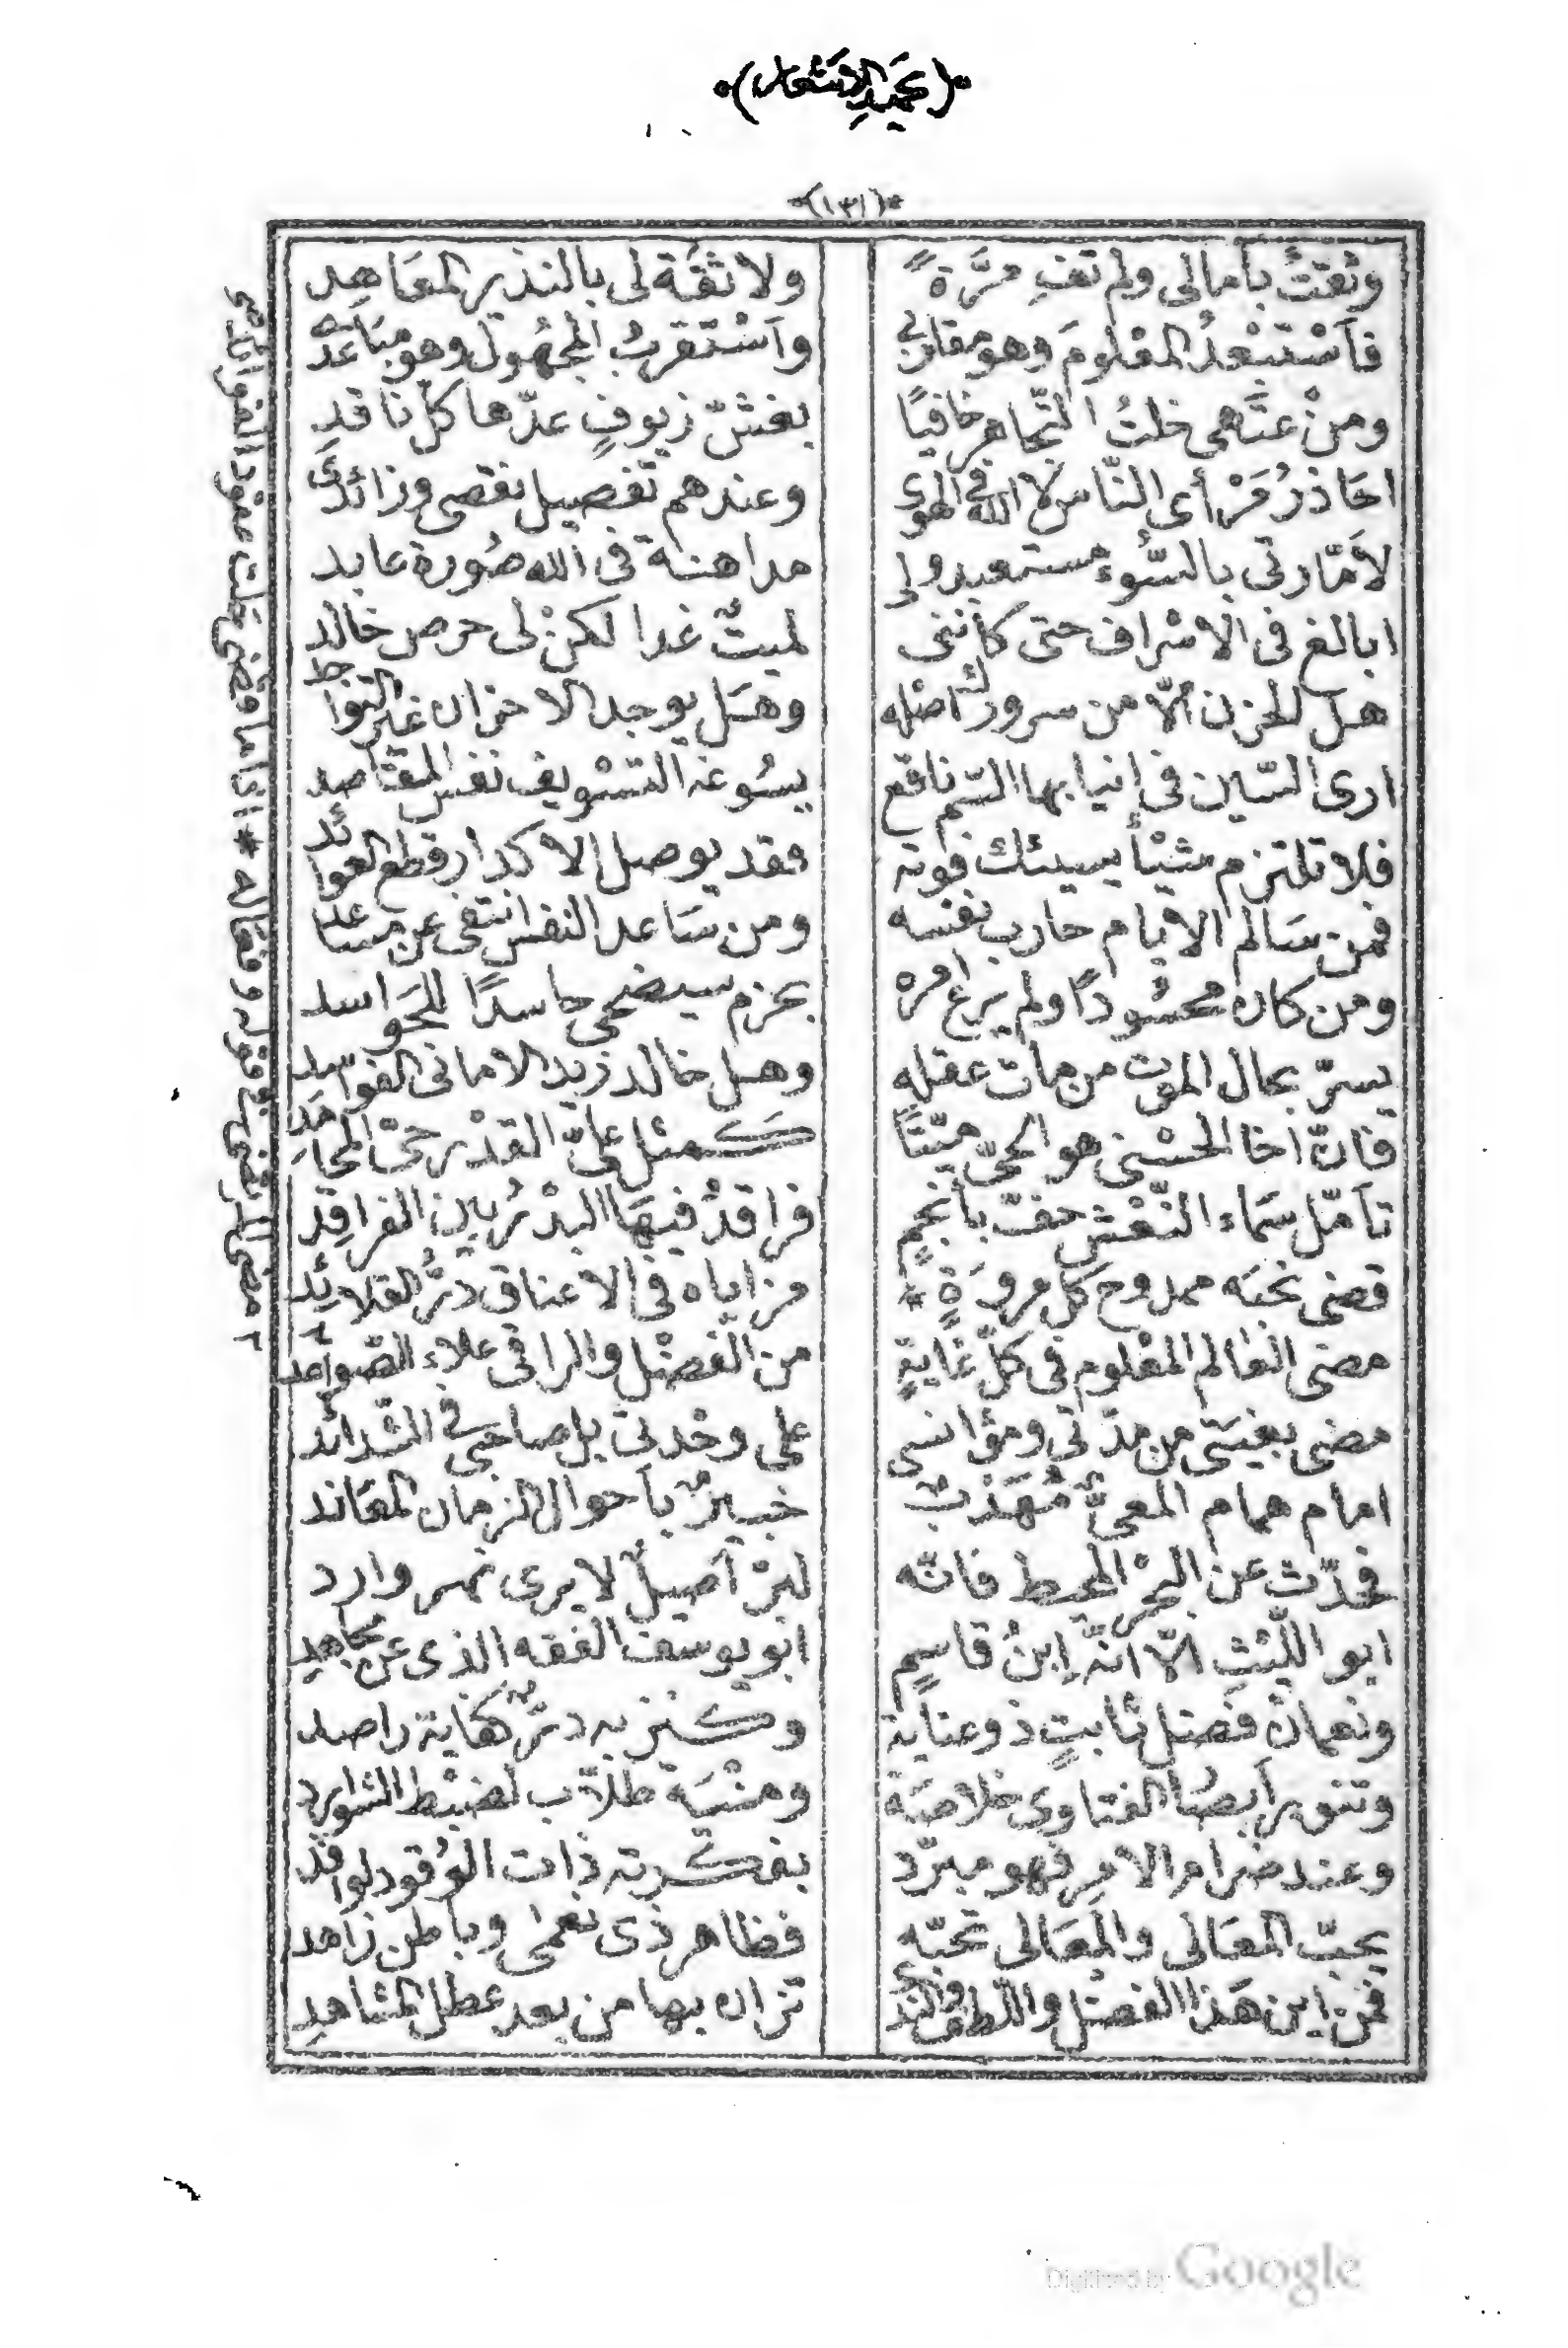 (١٣١)
وثقتُ بآمالى ولم تفِ مرَّةً ولا ثقة لى بالنذير المعَاهِد
فاَسْتبْعدُ المعْلومَ وهو مقارنى واَسْتقربُ المجهُول وهو مبَاعدى
ومنْ عَمَهى خلتُ التَّجاهر خافيًا بغشّ زيوفٍ عدّها كلّ ناقد
احَاذرُ مَرْأى النَّاس لا الله فى الهوى وعندهم تفصيل نقصى وزائدى
لاَمّارتى بالسُّوء مستعبد ولى مداهنة فى الله صُورة عابد
ابالغ فى الاسْراف حتى كأننى لميتٌ غدا لكنْ لى حرص خالد
هل الحزن الّا من سرورك اصْله وهَل يوجد الاحزان غير التواجد
ارى السّين فى انيابها السّم ناقع يسُوغه التسْويف نفس المقاصد
فلا تلتزم شيْأ يسيئك فوته فقد يوصل الاكدار قطع العوائد
فمن سَالم الايّام حارب نفسه ومن سَاعد النفس انتفى عن مساعد
ومن كان محسُودًا ولم يرع امره بحزم سيضحى حاسدًا للحَواسد
يسرّ بحال الموت من مات عقله وهل خالد زيد الامانى الفواسد
فانّ اخا الحسْنى هو الحىّ ميّتًا كمثل علىّ القدْر حىّ المحَامِد
تأمّل سَماء النّعْش حفّ بأنجمٍ فراقدْ فيهَا البدْرُ بين الفراقِد
قضى نحبَه ممدوح كل مروءَةٍ * مزاياه فى الاعناق درُّ القلائِد
مضى العَالم المعْلوم فى كلّ غايةٍ من الفضْل والراقى علاء الصّواعد
مضى بغيتى من مدّتى ومؤانسى على وحْدتى بل صاحبى فى الشّدائد
امام همام المعىٌّ مُهَذبٌ خبيرٌ بأحوال الزمان المعَاند
فحدّث عن البحْر المحيط فانّه لبرْ اَصيلٌ لا يرى نهر وارد
ابو اللّيْثِ الّا انَّه ابنُ قاسِمٍ ابو يوسف الفقه الذى عن مجَاهِد
ونعمان فضل ثابتٍ ذو عناية وكنز به درٌّ كفاية راصد
وتنوير اَبصَار الفتاوى خلاصَة ومنْيَة طلاّب لضبْط الشوارد
وعند ضرام الامر فهو مبرّد بفكرته ذات الوُقود لواقد
يحبّ المعَالى والمعَالى تحبّه فظاهر ذى نعمى وباطن زاهد
فمن اين هَذا الفضْل واللطف والندى تزان بها من بعد عطل المشاهد